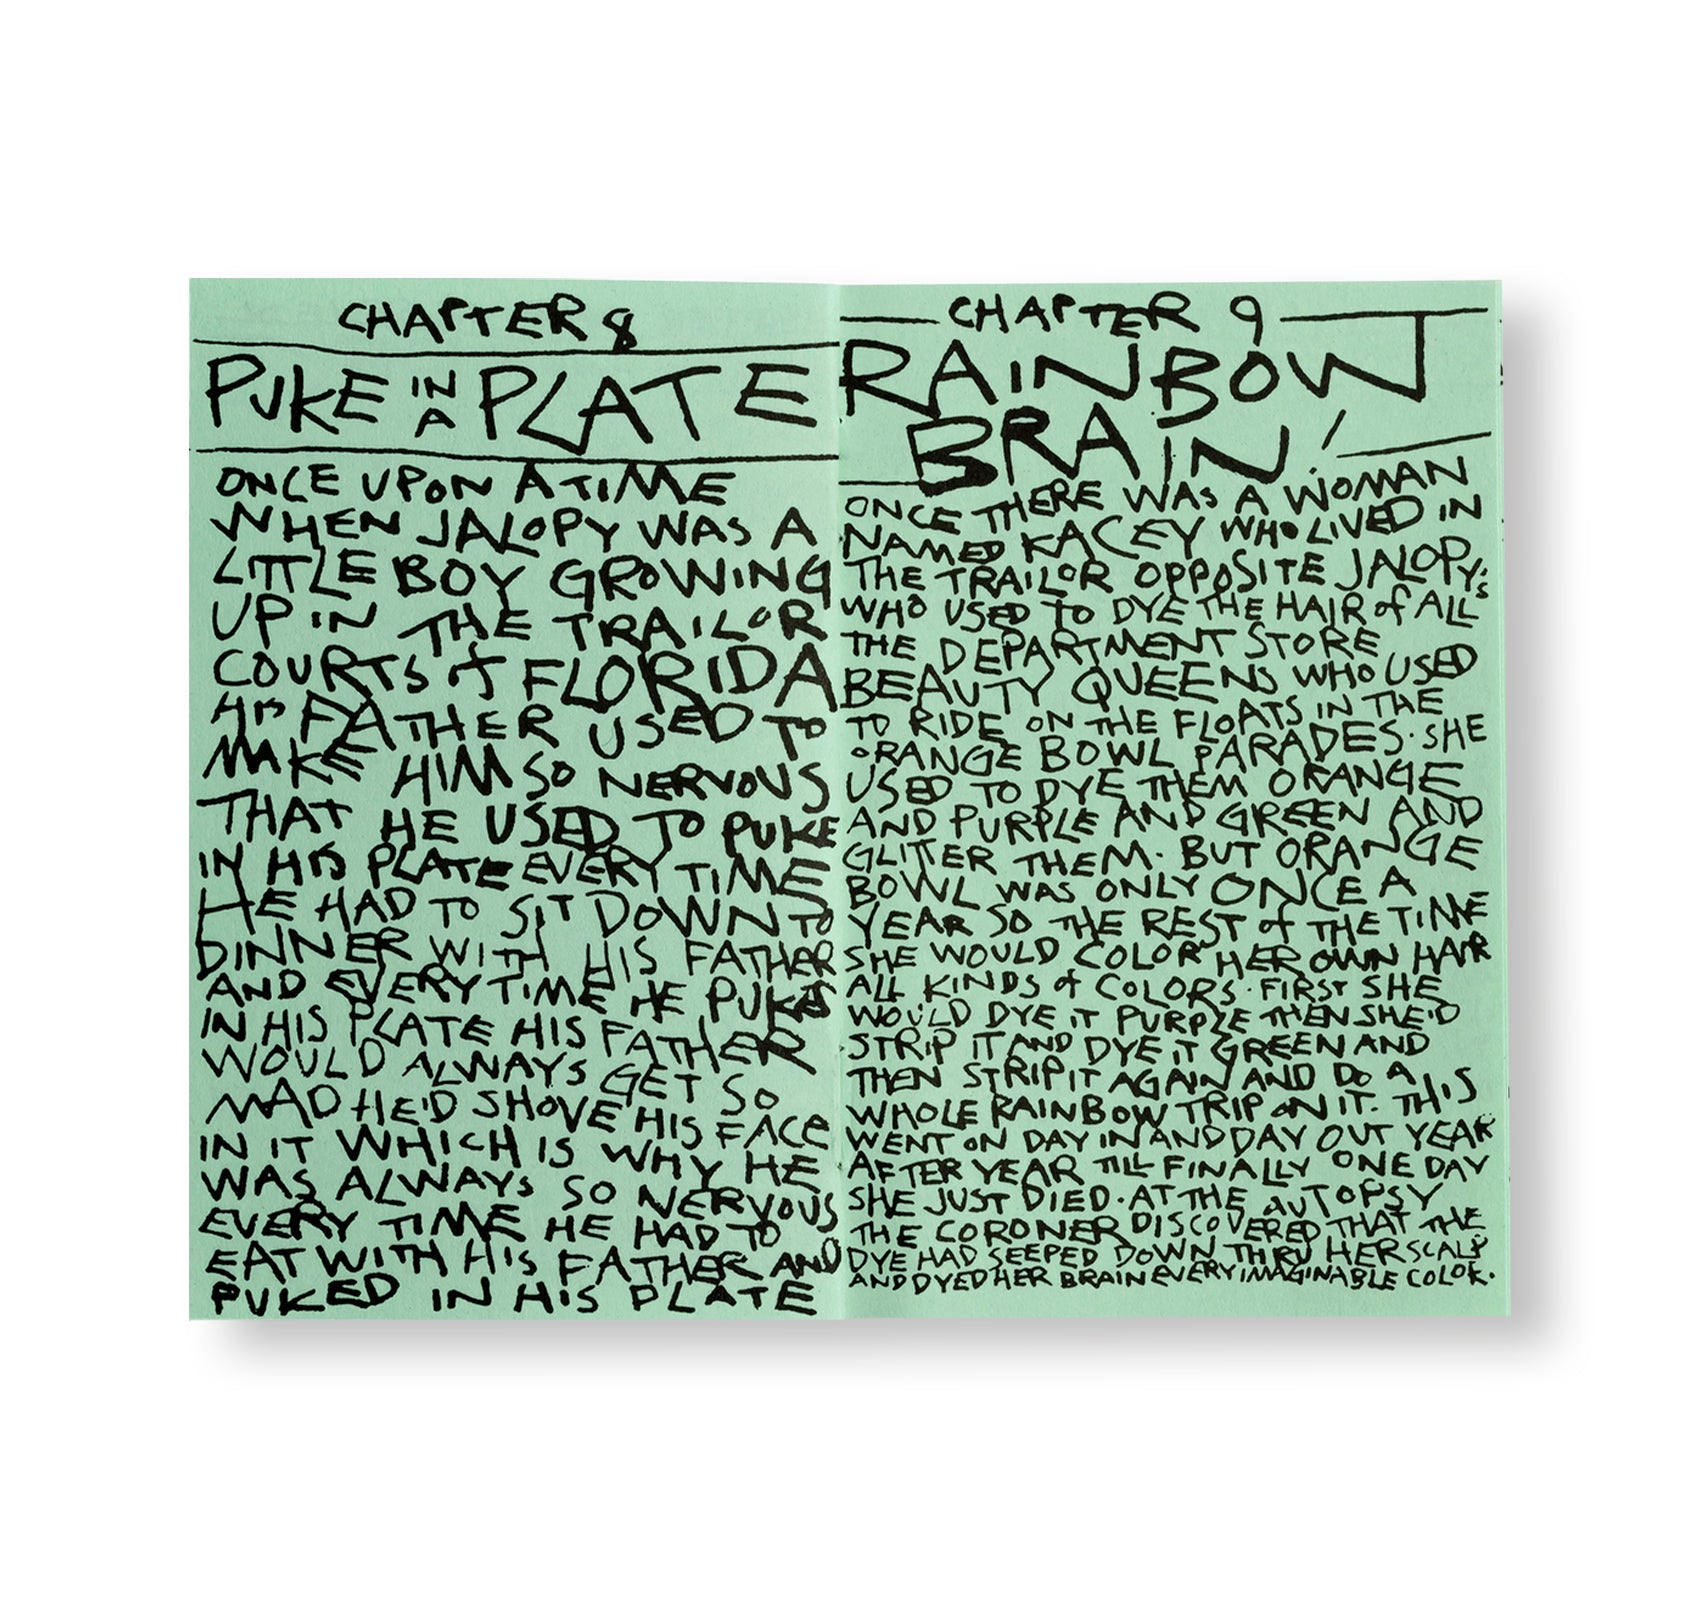 CHAPTER 8
PUKE IN A PLATE
ONCE UPON A TIME
WHEN JALOPY WAS A
LITTLE BOY GROWING
UP IN THE TRAILOR
COURTS of FLORIDA
HIS FATHER USED TO
MAKE HIM SO NERVOUS
THAT HE USED TO PUKE
IN HIS PLATE EVERY TIME
HE HAD TO SIT DOWN TO
DINNER WITH HIS FATHER
AND EVERY TIME HE PUKED
IN HIS PLATE HIS FATHER
WOULD ALWAYS GET SO
MAD HE'D SHOVE HIS FACE
IN IT WHICH IS WHY HE
WAS ALWAYS SO NERVOUS
EVERY TIME HE HAD TO
EAT WITH HIS FATHER AND
PUKED IN HIS PLATE
CHAPTER 9
RAINBOW
BRAIN!
ONCE THERE WAS A WOMAN
NAMED KACEY WHO LIVED IN
THE TRAILOR OPPOSITE JALOPY'S
WHO USED TO DYE THE HAIR of ALL
THE DEPARTMENT STORE
BEAUTY QUEENS WHO USED
TO RIDE ON THE FLOATS IN THE
ORANGE BOWL PARADES. SHE
USED TO DYE THEM ORANGE
AND PURPLE AND GREEN AND
GLITTER THEM. BUT ORANGE
BOWL WAS ONLY ONCE A
YEAR SO THE REST of THE TIME
SHE WOULD COLOR HER OWN HAIR
ALL KINDS of COLORS. FIRST SHE
WOULD DYE IT PURPLE THEN SHE'D
STRIP IT AND DYE IT GREEN AND
THEN STRIP IT AGAIN AND DO A
WHOLE RAINBOW TRIP ON IT. THIS
WENT ON DAY IN AND DAY OUT YEAR
AFTER YEAR TILL FINALLY ONE DAY
SHE JUST DIED. AT THE AUTOPSY
THE CORONER DISCOVERED THAT THE
DYE HAD SEEPED DOWN THRU HER SCALP
AND DYED HER BRAIN EVERY IMAGINABLE COLOR.